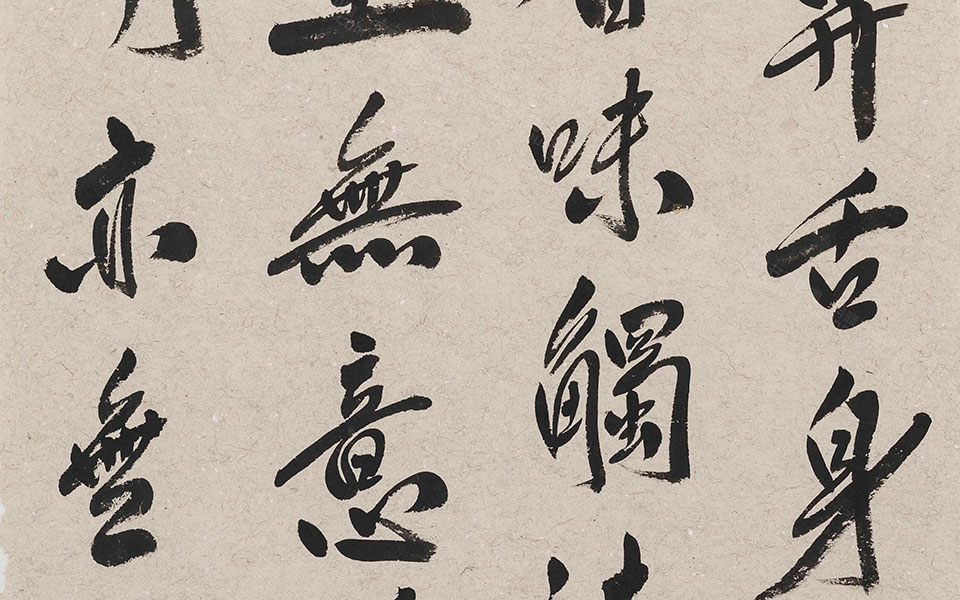 舌身
味觸
無意
亦無